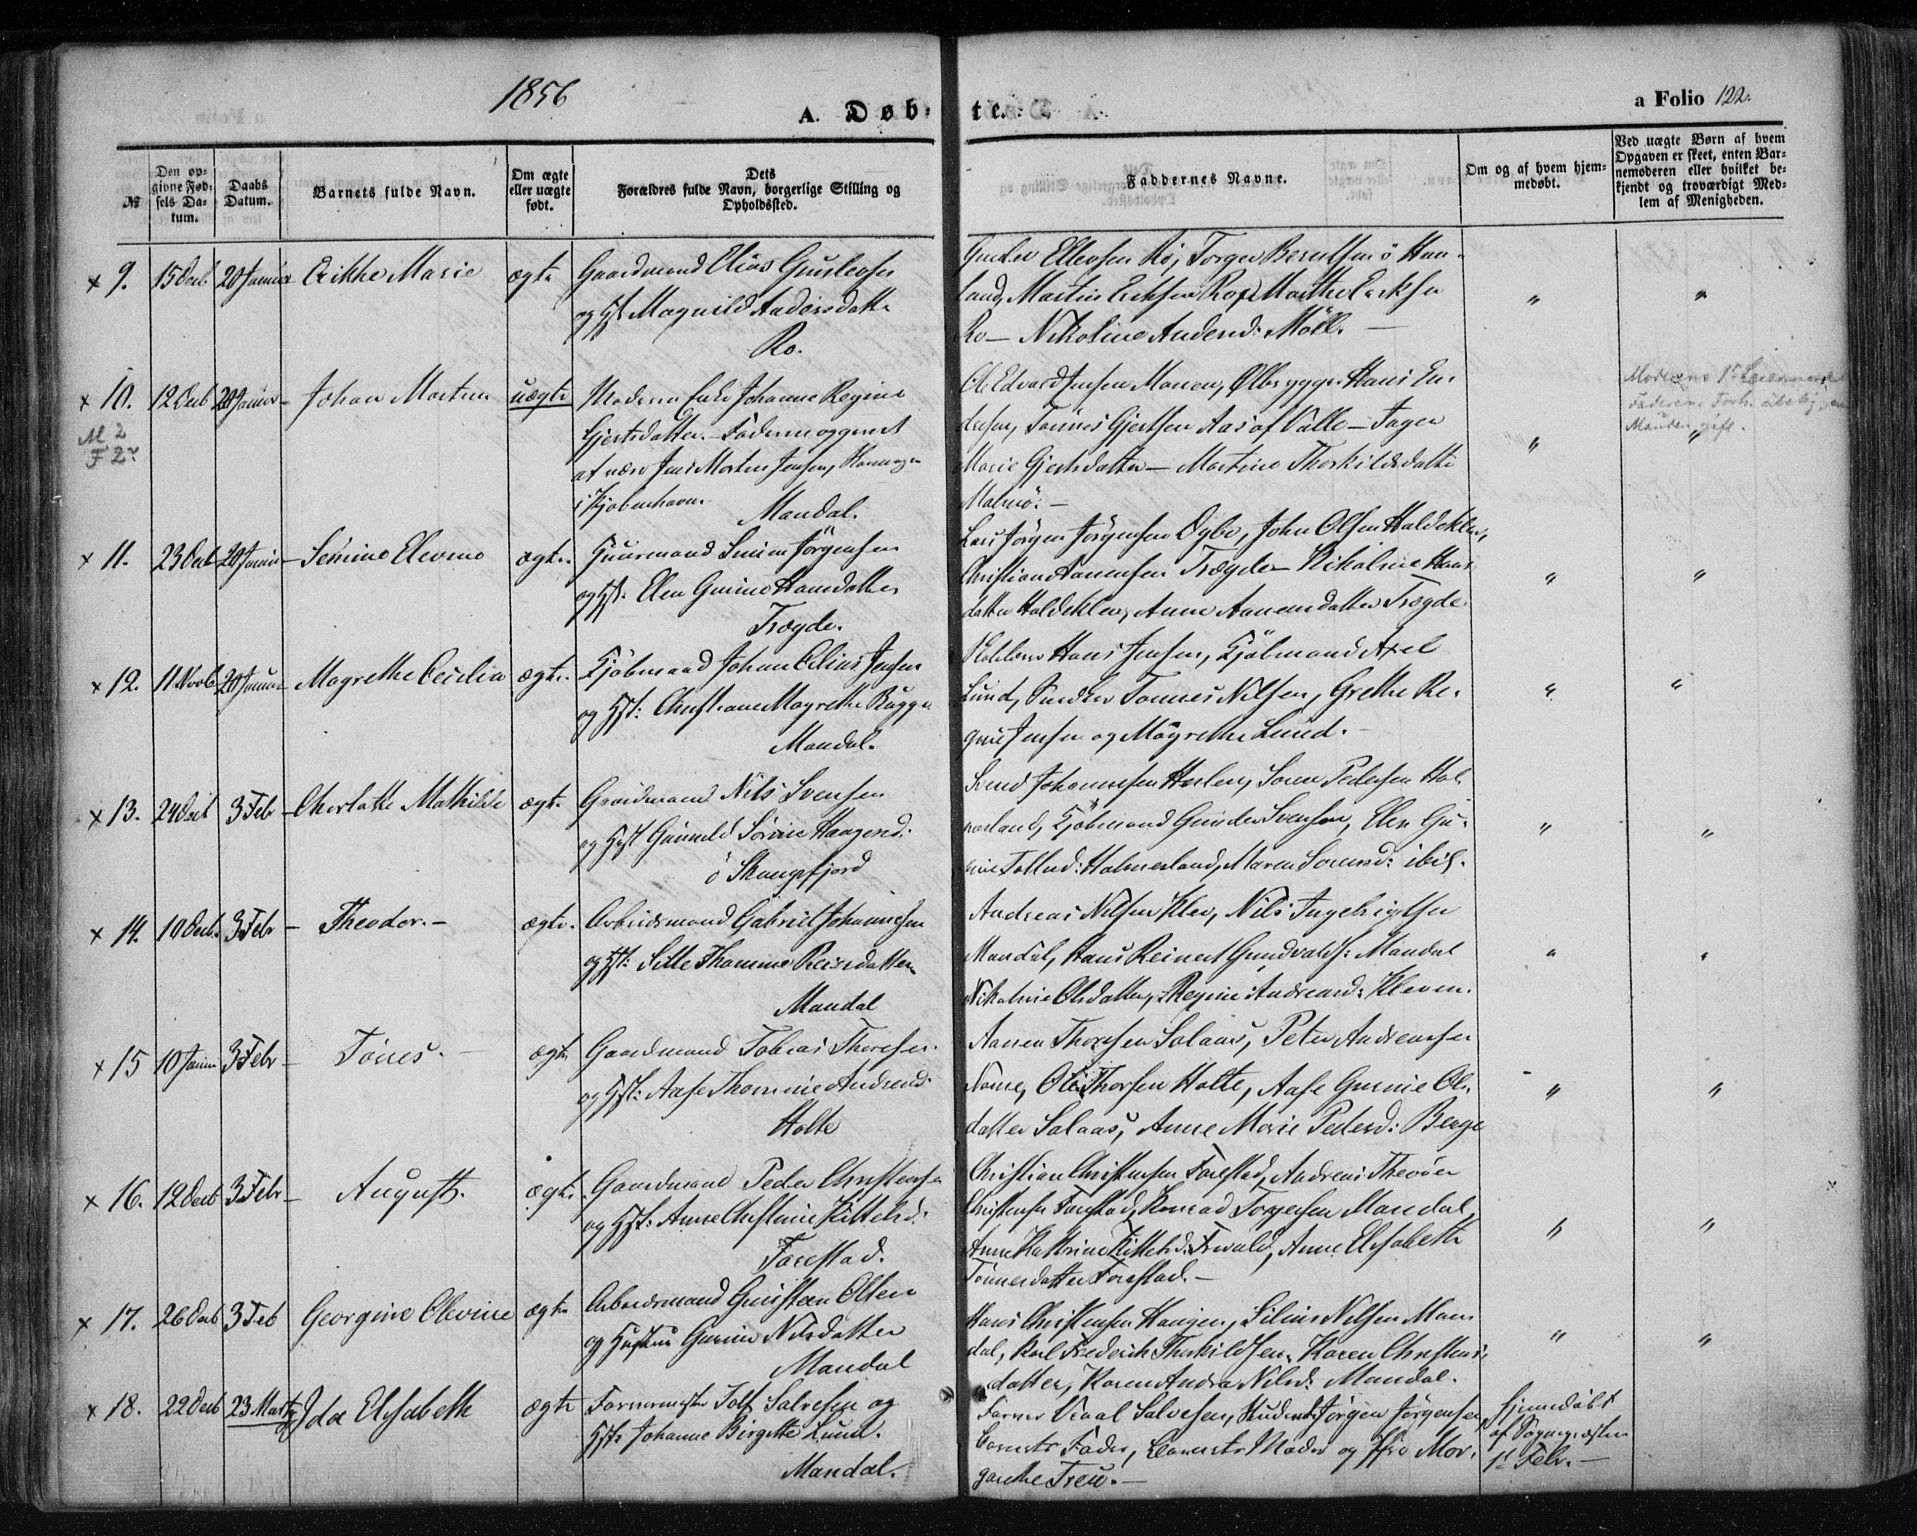 1856
A. Døb-te.
a Folio 122.
№
Den opgivne Fødsels Datum.
Daabs Datum.
Barnets fulde Navn.
Om ægte eller uægte født.
Dets Forældres fulde Navn, borgerlige Stilling og Opholdssted.
Faddernes Navne.
Om og af hvem hjemmedøbt.
Ved uægte Børn af hvem Opgaven er skeet, enten Barnemoderen eller hvilket bekjendt og troværdigt Medlem af Menigheden.
x 9. 15 Decb 20 Januar Marie ægte
Gaardmand Elias Gunlevsen
og Hst Magnild Andersdatter
Ro.
Gunder Ellevsen Ro, Torger Berntsen ö Hau-
land, Martin Eriksen Ro, Marthe Eriksen
Ro — Nikoline Andersd: Möll. —
" "
x 10. 12 Decb 20 Januar Johan Morten uægte
M 2
F 2
Moderen Enke Johanne Regine
Gjertsdatter. — Faderen opgivet
at være Jens Morten Jensen,
i Kjøbenhavn.
Mandal.
Ole Edvard Jensen Manen, Ølbrygger Hans En-
dresen, Tönnes Gjertsen Aas af Valle —
Marie Gjertsdatter — Martine Thorkildsdatter
Malmö. —
" "
Moderens 1ste Leiermaal
Faderens
Manden gift.
x 11. 23 Decb 20 Januar Elevine ægte.
Jörgensen
og Hst: Elen Gurine Hansdatter
Trægde.
Lars Jörgen Jörgensen Dybo, John Olsen Haldekleven,
Christian Aanensen Trægde — Nikoline Hans-
datter Haldekleven, Anne Aanensdatter Trægde.
" "
x 12. 11 Novb 20 Januar Magrethe Cecilia ægte.
Kjöbmand Johan Jensen
og Hst: Christiane Magrethe Bugge
Mandal.
Hans Jensen, Kjöbmand Axel
Lund, Snedker Tönnes Nilsen, Grethe Re-
gine Jensen og Magrethe Lund. —
" "
x 13. 24 Decb 3 Feb — Charlotte Mathilde ægte
Gaardmand Nils Svensen
og Hst Gunnild Sörine Haagensd:
ö Skaugsfjord
Svend Johannesen Soren Pedersen Hol-
merland, Kjöbmand Gunder Svensen, Elen Gu-
rine Tollad: Holmerland, Maren Sorensd: ibid.
" "
x 14. 10 Decb. 3 Febr — Theodor. — ægte.
Arbeidsmand Gabriel Johannesen
og Hst: Sille Thomine
Mandal
Andreas Nilsen Klev, Nils Ingebrigtsen
Mandal, Hans Reinert Gundvalds: Mandal
Nikoline Olsdatter, Regine Andreasd: Kleven.
" "
x 15 10 Janur 3 Febr — Tönes. — ægte
Gaardmand Tobias Thoresen.
og Hst: Aase Thomine Andersd:
Holte
Aanen Thorsen Salaas, Peter Andreassen
Nome, Ole Thorsen Holte, Aase Gurine Ols-
datter Salaas, Anne Marie Pedersd: Berge
" "
x 16. 12 Decb 3 Febr — August. ægte.
Gaardmand Peder Christensen
og Hst: Anne Christine Kittelsd:
Forestad.
Christian Christensen Forestad, Andreas Theodor
Christensen Forestad, Konrad Torgersen Mandal,
Anne Kathrine Kittelsd: Anne Elisabeth
Tönnesdatter Forestad. —
" "
x 17. 26 Decb 3 Feb Georgine Olevine ægte
Arbeidsmand Christian Olsen
og Hustru Gurine Nilsdatter
Mandal
Hans Christensen Haugen, Nilsen Man-
dal, Karl Frederik Thorkildsen, Karen Christens-
datter, Karen Andrea Nilsd: Mandal.
" "
x 18. 22 Decb 23 Marts Ida Elisabeth ægte
Farvermester Salvesen og
Hst: Johanne Birgitte Lund.
Mandal.
Farver Salvesen, Student Jörgen Jörgensen
Barnets Fader, Barnets Moder og Mar-
grethe Treu. —
Hjemmedöbt
af Sognepræsten
1ste Febr. —